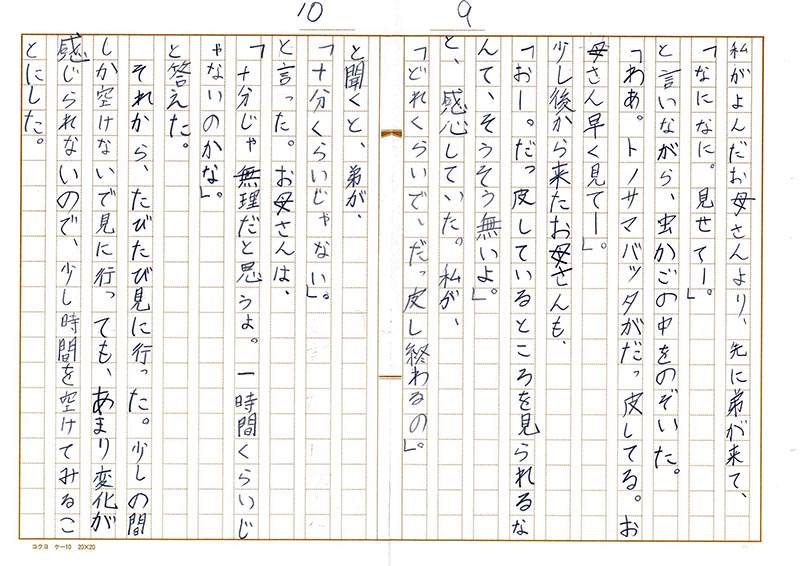 9
私がよんだお母さんより、先に弟が来て、
「なになに。見せてー」。
と言いながら、虫かごの中をのぞいた。
「わあ。トノサマバッタがだっ皮してる。お
母さん早く見てー」。
少し後から来たお母さんも、
「おー。だっ皮しているところを見られるな
んて、そうそう無いよ」。
と、感心していた。私が、
「どれくらいで、だっ皮し終わるの」。
10
と聞くと、弟が、
「十分くらいじゃない」。
と言った。お母さんは、
「十分じゃ無理だと思うよ。一時間くらいじ
ゃないのかな」。
と答えた。
それから、たびたび見に行った。少しの間
しか空けないで見に行っても、あまり変化が
感じられないので、少し時間を空けてみるこ
とにした。
コクヨ ケー10 20×20